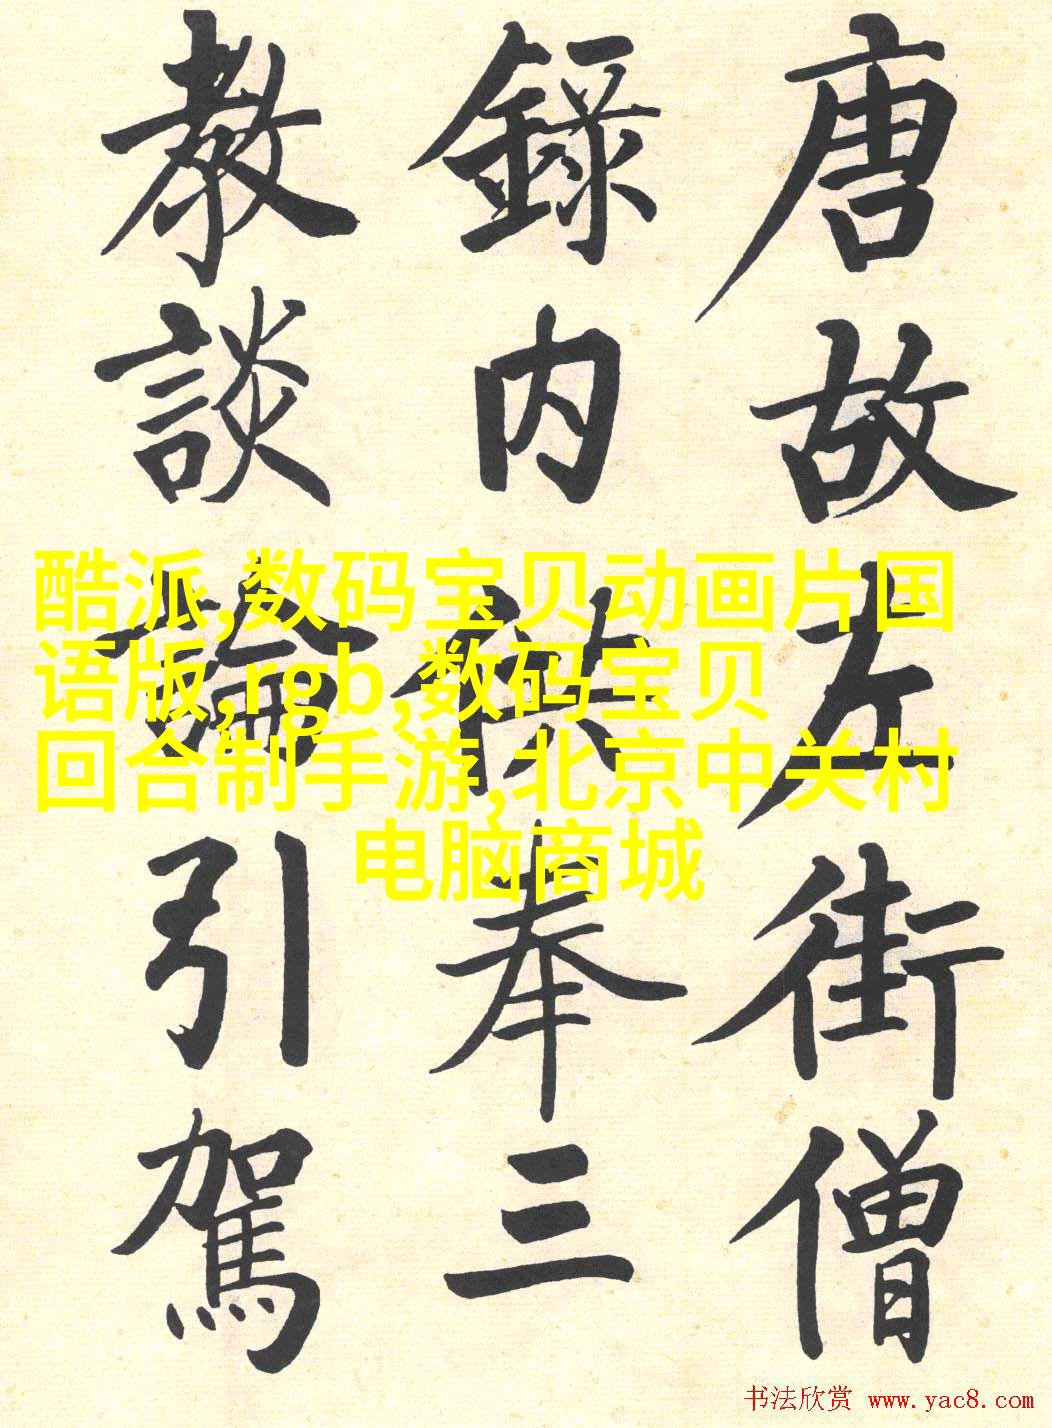 唐故左街僧
録内供奉三
教談論引駕
酷派,数码宝贝动画片国
语版,rgb,数码宝贝
回合制手游,北京中关村
电脑商城
书法欣赏 www.yac8.com